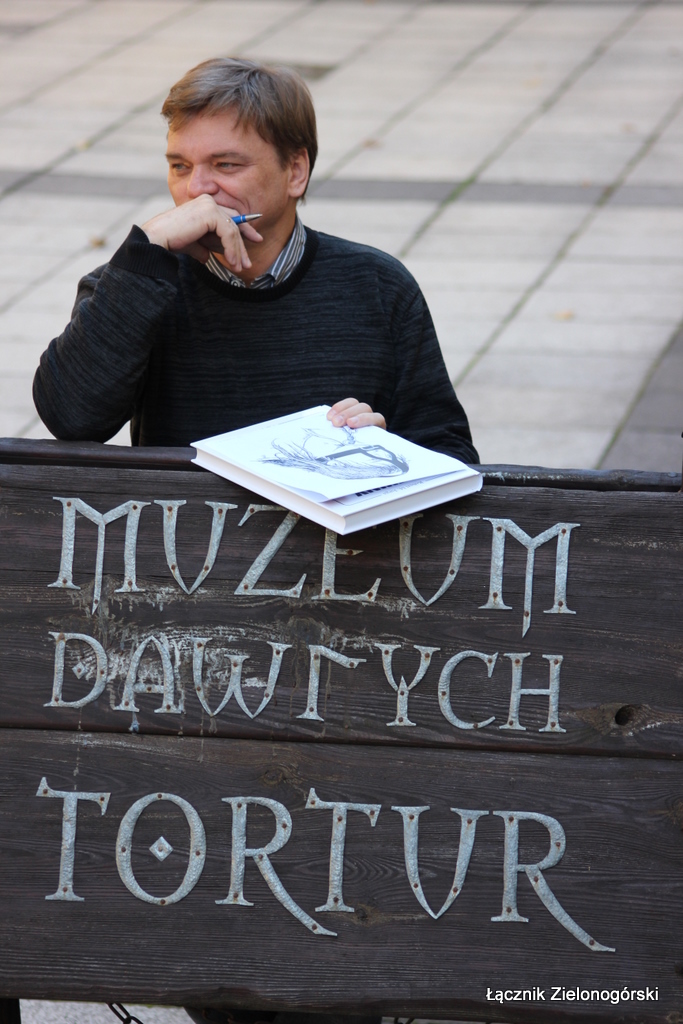 MUZEUM
DAWNYCH
TORTUR
Łącznik Zielonogórski